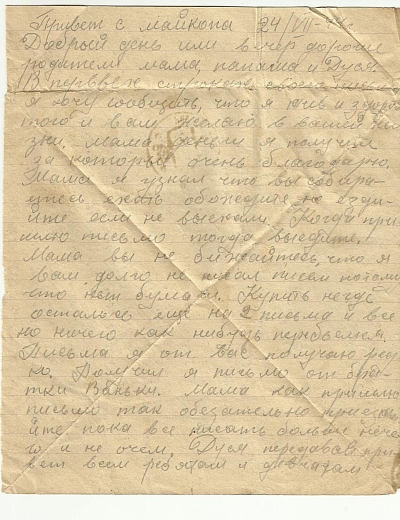 Привет с майкопа 24/VII-44г
Добрый день или вечер дорогие
родители мама, папаша и Дуся.
В первых строках своего письма
я хочу сообщить, что я жив и здоров
того и вам желаю в вашей жи
зни. Мама деньги я получил
за которые очень благодарю.
Мама я узнал что вы собира-
етесь ехать обождите не езди-
йте если не выехали. Когда при
шлю письмо тогда выедете.
Мама вы не обижайтесь, что я
вам долго не писал писем потому
что нет бумаги. Купить негде
осталось ещё на 2 письма и все
но ничего как нибудь пробьемся.
Письма я от вас получаю ред
ко. Получил я письмо от бра-
тки Ваньки. Мама как пришлю
письмо так обезательно приез
йте пока все писать больше нече
го и не очем. Дуся передавай при
вет всем ребятам и девчатам